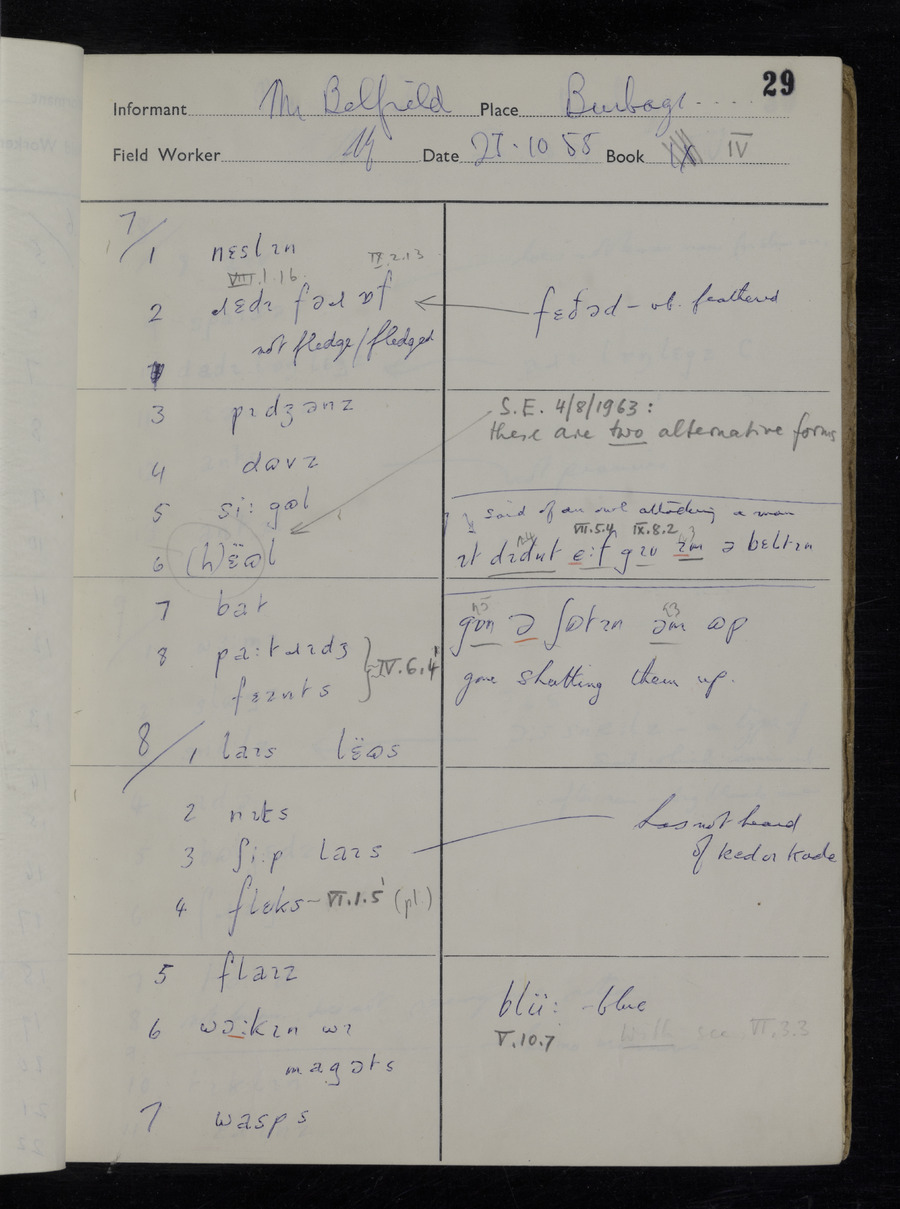 29
Informant Mr Belfield Place Burbage
Field Worker Date 27.10.55 Book IV
7/1 nɛslɪn
VIII.1.16. IX.2.13
2 ɹɛdɪ fəɹ ɒf ← fɛðəd – ob. feathered
not fledge/fledged
3 pɪdʒənz
S.E. 4/8/1963:
these are two alternative forms
4 dɷvz
5 si:gɷl
said of an owl attacking a man
VII.5.4 IX.8.2
6 (h)ɛ̈ɷl
ɪt dɪdnt e:f gɪv ɪm ə bɛltɪn
7 bat
gɒn ə ʃɷtɪn əm ɷp
8 pa:tɹɪdʒ
fɛznts } IV.6.4
gone shutting them up.
8/1 laɪs lɛ̈ɷs
2 nɪts
3 ʃi:p laɪs
has not heard
of ked or kade
4 flɛks – VI.1.5 (pl.)
5 flaɪz
blü: – blue
V.10.7 With see VI.3.3
6 wə:kɪn wɪ
magəts
7 wasps